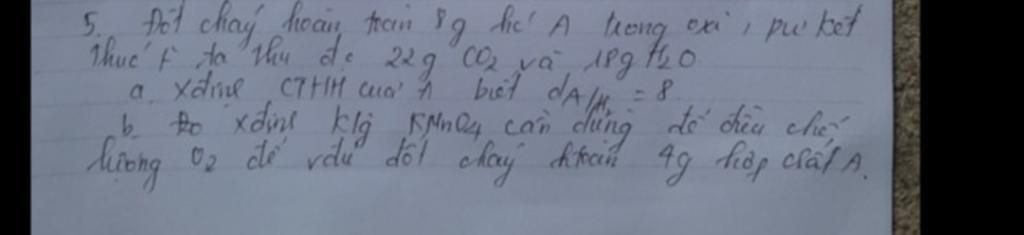 5. Đốt cháy hoàn toàn 8g h/c A trong oxi, pư kết
thúc ta thu đc 22g CO2 và 18g H2O
a. xđịnh CTHH của A biết dA/H2 = 8
b. xđịnh klg KMnO4 cần dùng để điều chế
lượng O2 để vđủ đốt cháy htoàn 4g hợp chất A.